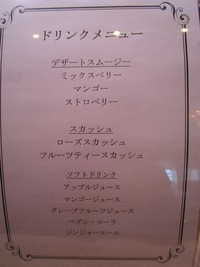 ドリンクメニュー
デザートスムージー
ミックスベリー
マンゴー
ストロベリー
スカッシュ
ローズスカッシュ
フルーツティースカッシュ
ソフトドリンク
アップルジュース
マンゴージュース
グレープフルーツジュース
ペプシ・コーラ
ジンジャーエール